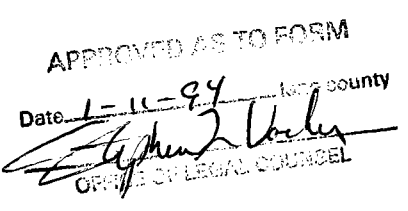 APPROVED AS TO FORM
Date 1-11-94 lane county
Stephen L Vorhes
OFFICE OF LEGAL COUNSEL